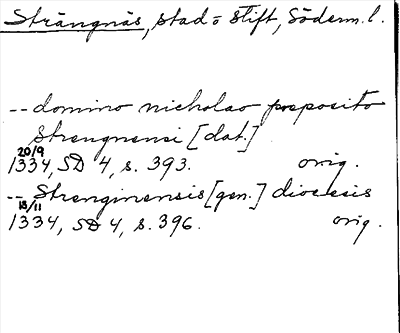 Strängnäs, stad o Stift, Söderm. l.
-- domino nicholao preposito
Strengnensi [dat.]
20/9
1334, SD 4, s. 393. orig.
-- Strenginensis [gen.] diocesis
18/11
1334, SD 4, s. 396. orig.